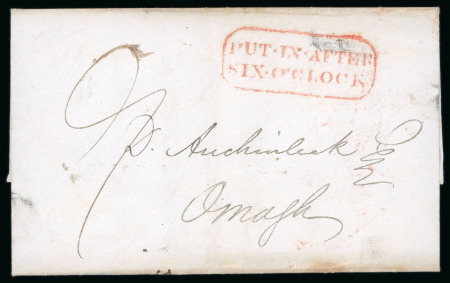 PUT·IN·AFTER
SIX·O'CLOCK
9
D. Auchinleck Esq
Omagh